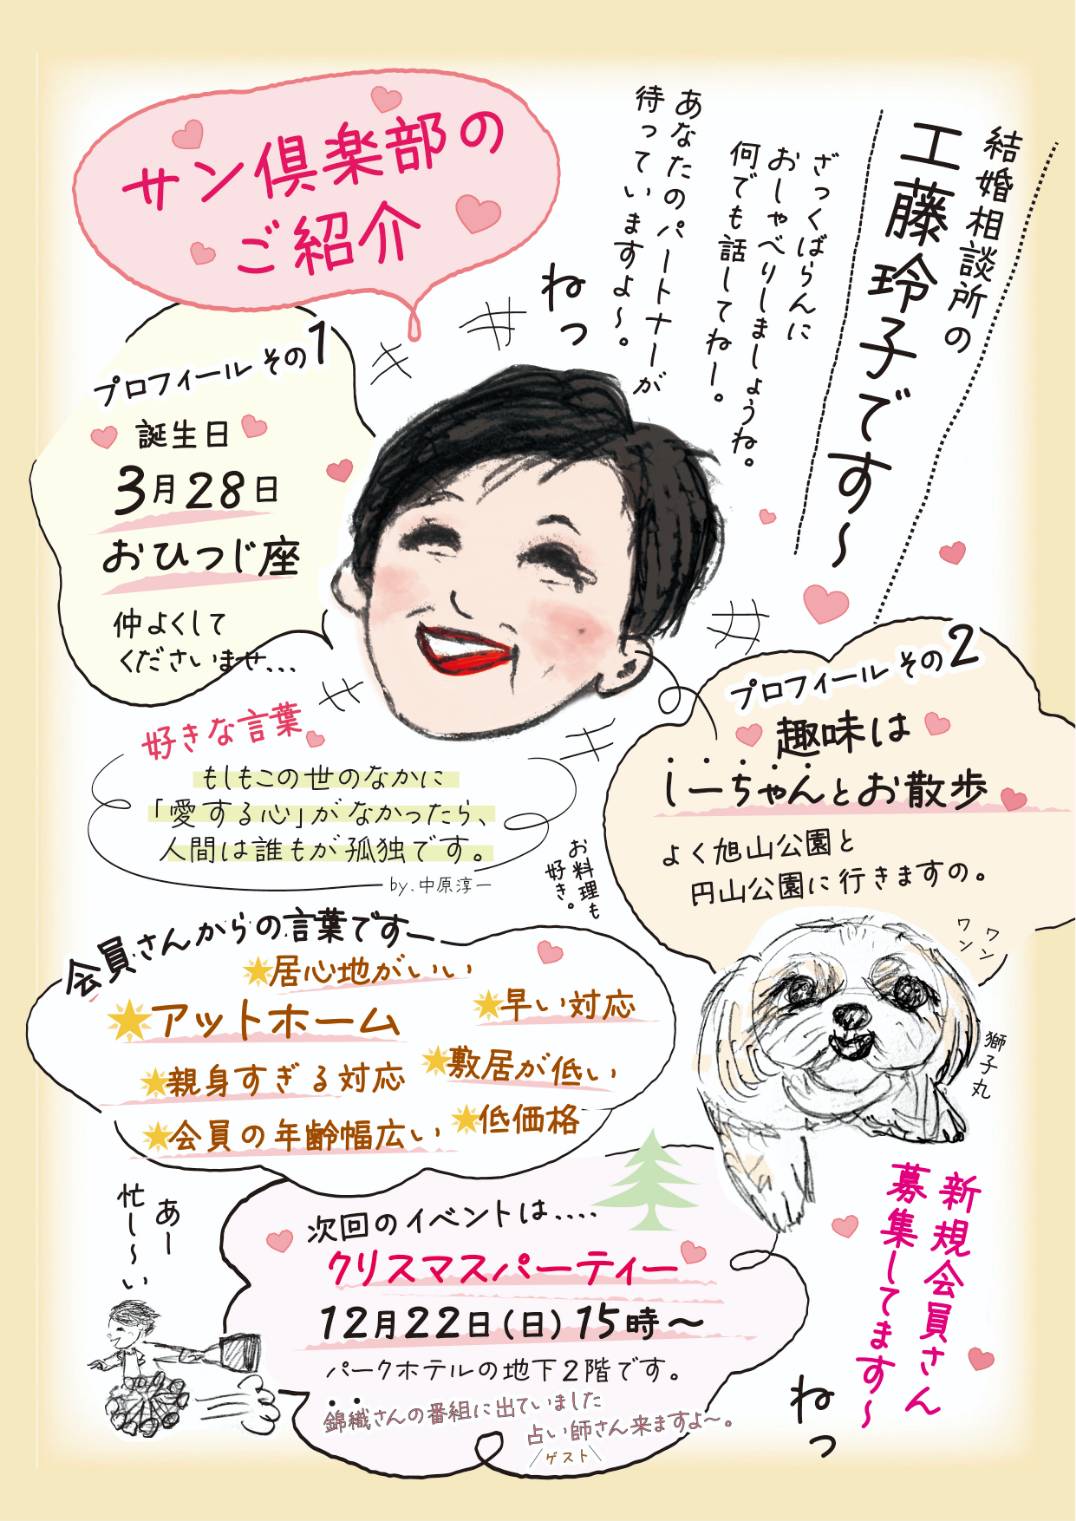 サン倶楽部の
ご紹介
結婚相談所の
工藤玲子です〜
ざっくばらんに
おしゃべりしましょうね。
何でも話してねー。
あなたのパートナーが
待っていますよ〜。
ねっ
プロフィール その1
誕生日
3月28日
おひつじ座
仲よくして
くださいませ...
好きな言葉
もしもこの世のなかに
「愛する心」がなかったら、
人間は誰もが孤独です。
by.中原淳一
プロフィール その2
趣味は
しーちゃんとお散歩
よく旭山公園と
円山公園に行きますの。
お料理も
好き。
ワンワン
獅子丸
会員さんからの言葉ですー
居心地がいい
アットホーム
早い対応
親身すぎる対応
敷居が低い
会員の年齢幅広い
低価格
あー
忙し〜い
次回のイベントは....
クリスマスパーティー
12月22日(日)15時〜
パークホテルの地下2階です。
錦織さんの番組に出ていました
占い師さん来ますよ〜。
ゲスト
新規会員さん
募集してます〜
ねっ